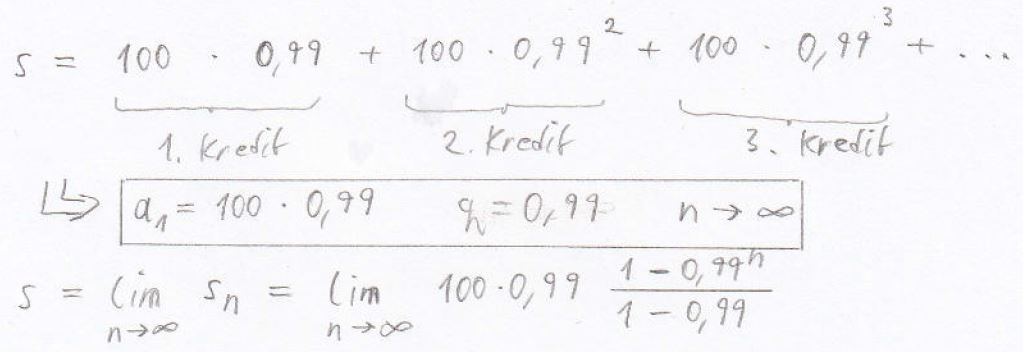 s = 100 · 0,99 + 100 · 0,99² + 100 · 0,99³ + ...
1. Kredit 2. Kredit 3. Kredit
a₁ = 100 · 0,99 q = 0,99 n → ∞
s = lim n→∞ sₙ = lim n→∞ 100·0,99 (1 − 0,99ⁿ)/(1 − 0,99)